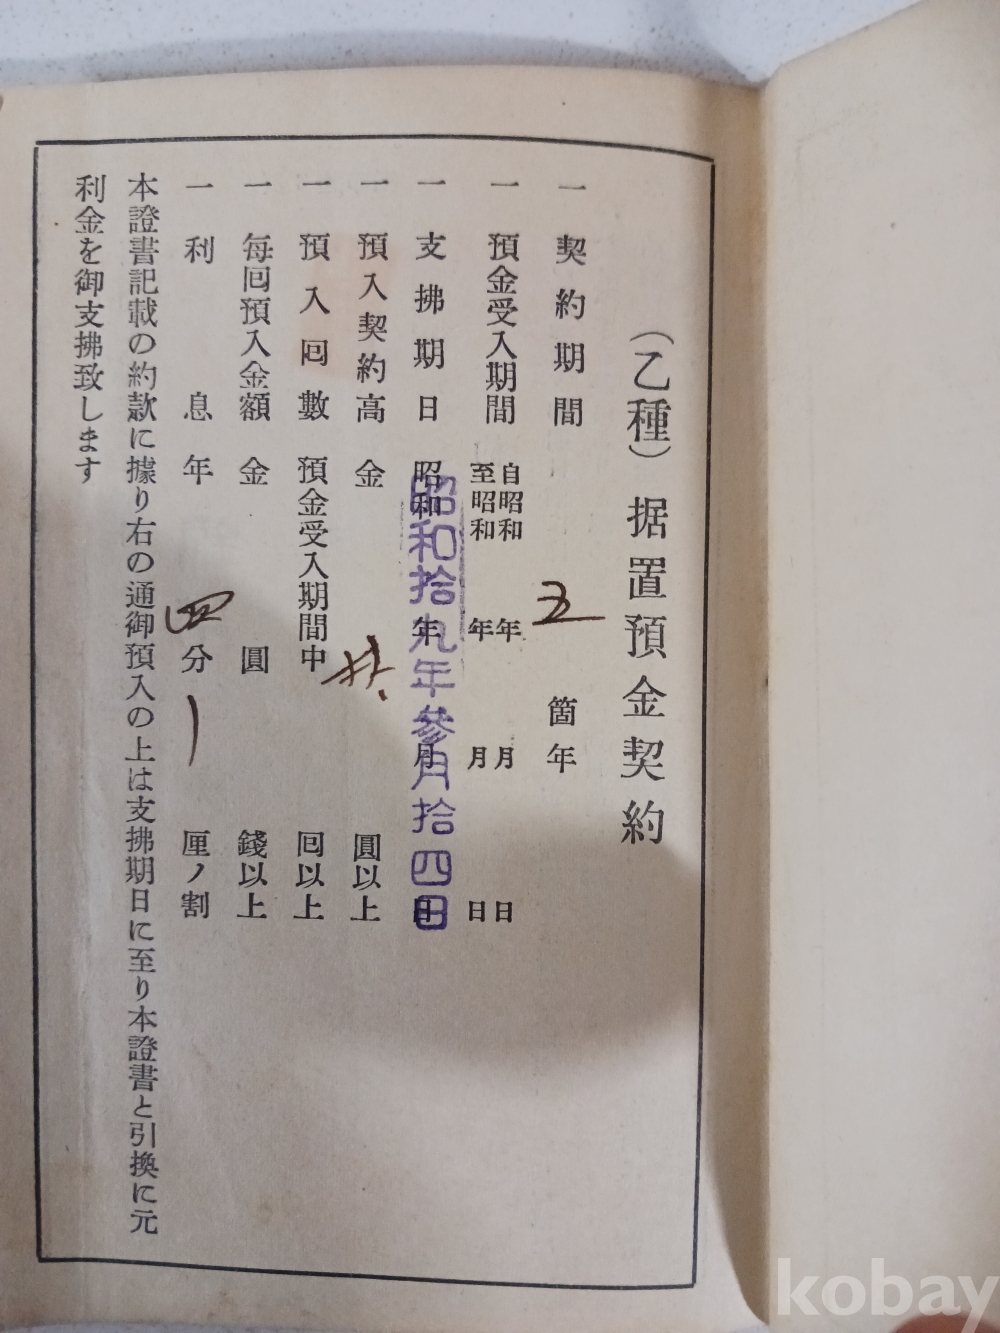 (乙種)据置預金契約
一 契約期間 五 箇年
一 預金受入期間 自昭和 年 月 日
至昭和 年 月 日
一 支拂期日 昭和 年 月 日
昭和拾九年參月拾四日
一 預入契約高 金 圓以上
一 預入回數 預金受入期間中 回以上
一 每回預入金額 金 圓 錢以上
一 利息年 四分 厘ノ割
本證書記載の約款に據り右の通御預入の上は支拂期日に至り本證書と引換に元
利金を御支拂致します
kobay